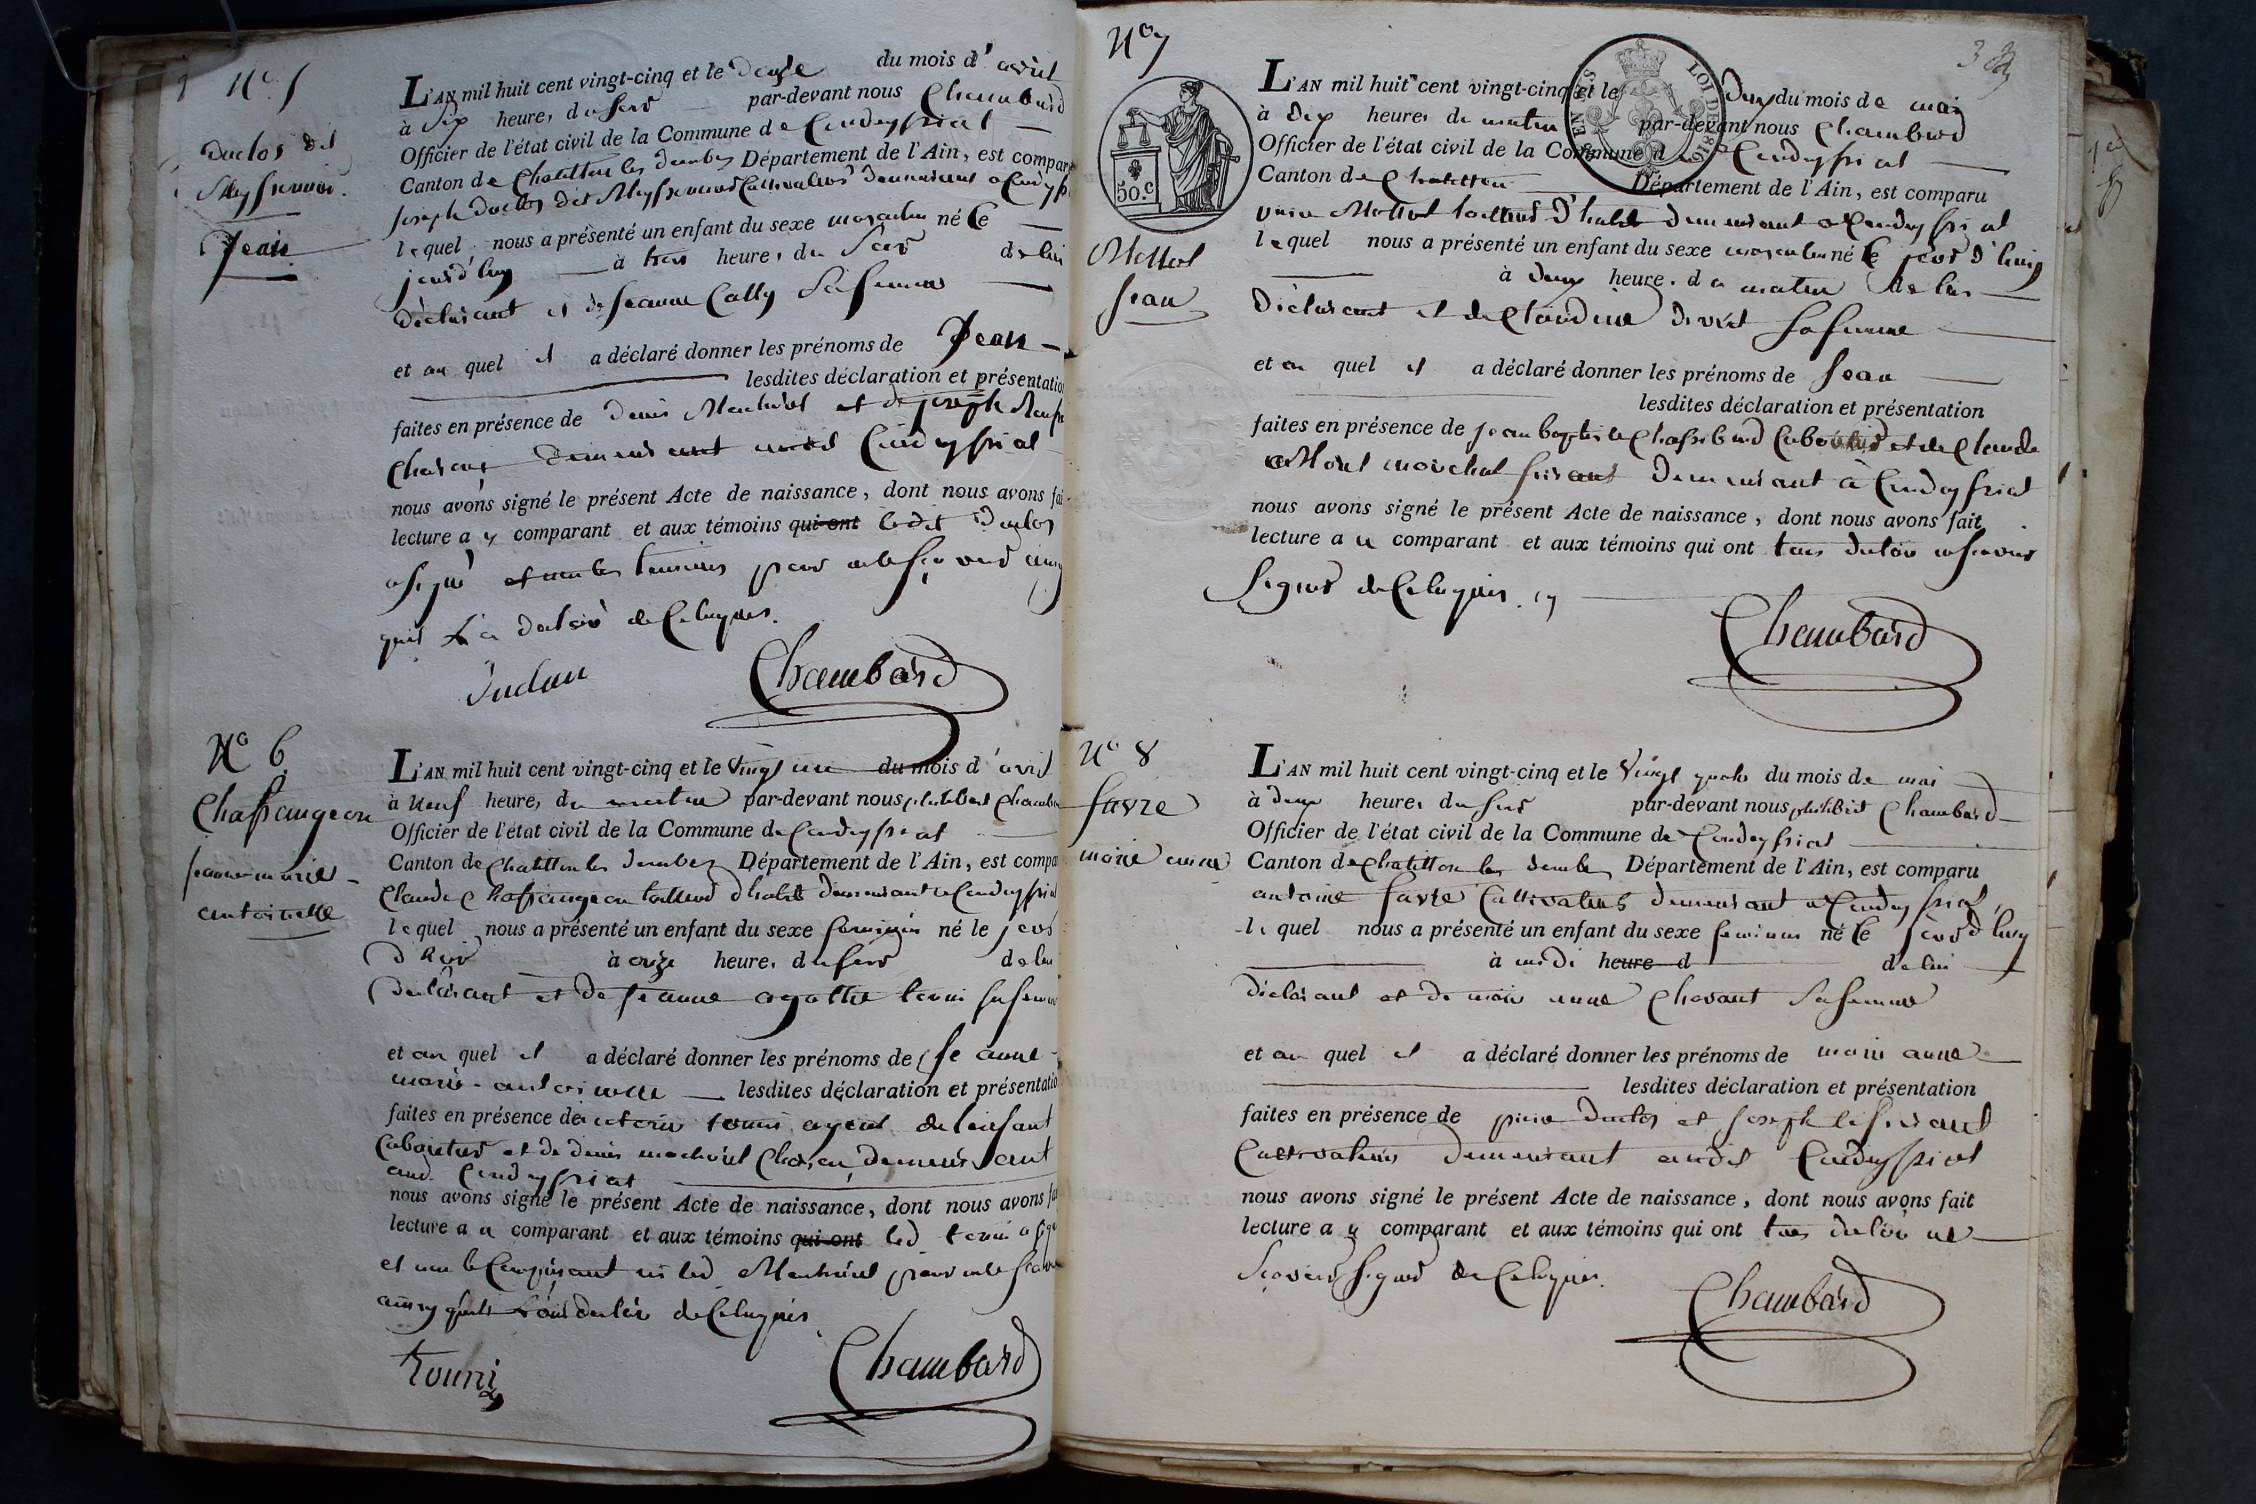 N° 5
Duclos dit
Meyssonnier
Jean
L'AN mil huit cent vingt-cinq et le douze du mois d'avril
à six heures du soir par-devant nous Chambard
Officier de l'état civil de la Commune de Condeyssiat
Canton de Chatillon les dombes Département de l'Ain, est comparu
joseph duclos dit cultivateur demeurant a
lequel nous a présenté un enfant du sexe masculin né le
jourd'huy à trois heures du soir de lui
déclarant et de jeanne Cally sa femme
et au quel il a déclaré donner les prénoms de Jean
lesdites déclaration et présentation
faites en présence de denis et de joseph
demeurant audit Condeyssiat
nous avons signé le présent Acte de naissance, dont nous avons fait
lecture au comparant et aux témoins qui ont ledit duclos
a signé et non les temoins pour ne le sçavoir ainsy
de ce enquis.
Duclou
Chambard
N° 6
Chassangeon
jeanne marie
antoinette
L'AN mil huit cent vingt-cinq et le vingt un du mois d'avril
à neuf heures du matin par-devant nous philibert Chambard
Officier de l'état civil de la Commune de Condeyssiat
Canton de Chatillon les dombes Département de l'Ain, est comparu
Claude Chassangeon tailleur d'habit demeurant a Condeyssiat
lequel nous a présenté un enfant du sexe feminin né le jour
d'hier à onze heures du soir de lui
declarant et de jeanne agathe sa femme
et au quel il a déclaré donner les prénoms de jeanne
marie antoinette lesdites déclaration et présentation
faites en présence de ayeul de l'enfant
et de denis demeurant
aud. Condeyssiat
nous avons signé le présent Acte de naissance, dont nous avons fait
lecture au comparant et aux témoins qui ont led. a signé
et non le comparant ni led. pour ne le
ainsy qu'ils l'ont declaré de ce enquis.
Chambard
N° 7
Mottet
jean
50.C
EN SUS
LOI DE 1816
L'AN mil huit cent vingt-cinq et le deux du mois de mai
à dix heures du matin par-devant nous Chambard
Officier de l'état civil de la Commune d Condeyssiat
Canton de Chatillon Département de l'Ain, est comparu
Mottet tailleur d'habit demeurant a Condeyssiat
lequel nous a présenté un enfant du sexe masculin né le jour d'huy
à deux heures du matin de lui
déclarant et de Claudine sa femme
et au quel il a déclaré donner les prénoms de jean
lesdites déclaration et présentation
faites en présence de jean baptiste et de Claude
marchal demeurant à Condeyssiat
nous avons signé le présent Acte de naissance, dont nous avons fait
lecture au comparant et aux témoins qui ont tous declaré ne sçavoir
signer de ce enquis.
Chambard
N° 8
favre
marie anne
L'AN mil huit cent vingt-cinq et le vingt quatre du mois de mai
à deux heures du soir par-devant nous philibert Chambard
Officier de l'état civil de la Commune de Condeyssiat
Canton de Chatillon les dombes Département de l'Ain, est comparu
antoine favre Cultivateur demeurant a Condeyssiat
lequel nous a présenté un enfant du sexe feminin né le jour d'huy
à midi heure d de lui
déclarant et de marie anne sa femme
et au quel il a déclaré donner les prénoms de marie anne
lesdites déclaration et présentation
faites en présence de pierre duclos et joseph
Cultivateurs demeurant audit Condeyssiat
nous avons signé le présent Acte de naissance, dont nous avons fait
lecture au comparant et aux témoins qui ont tous declaré ne
sçavoir signer de ce enquis.
Chambard